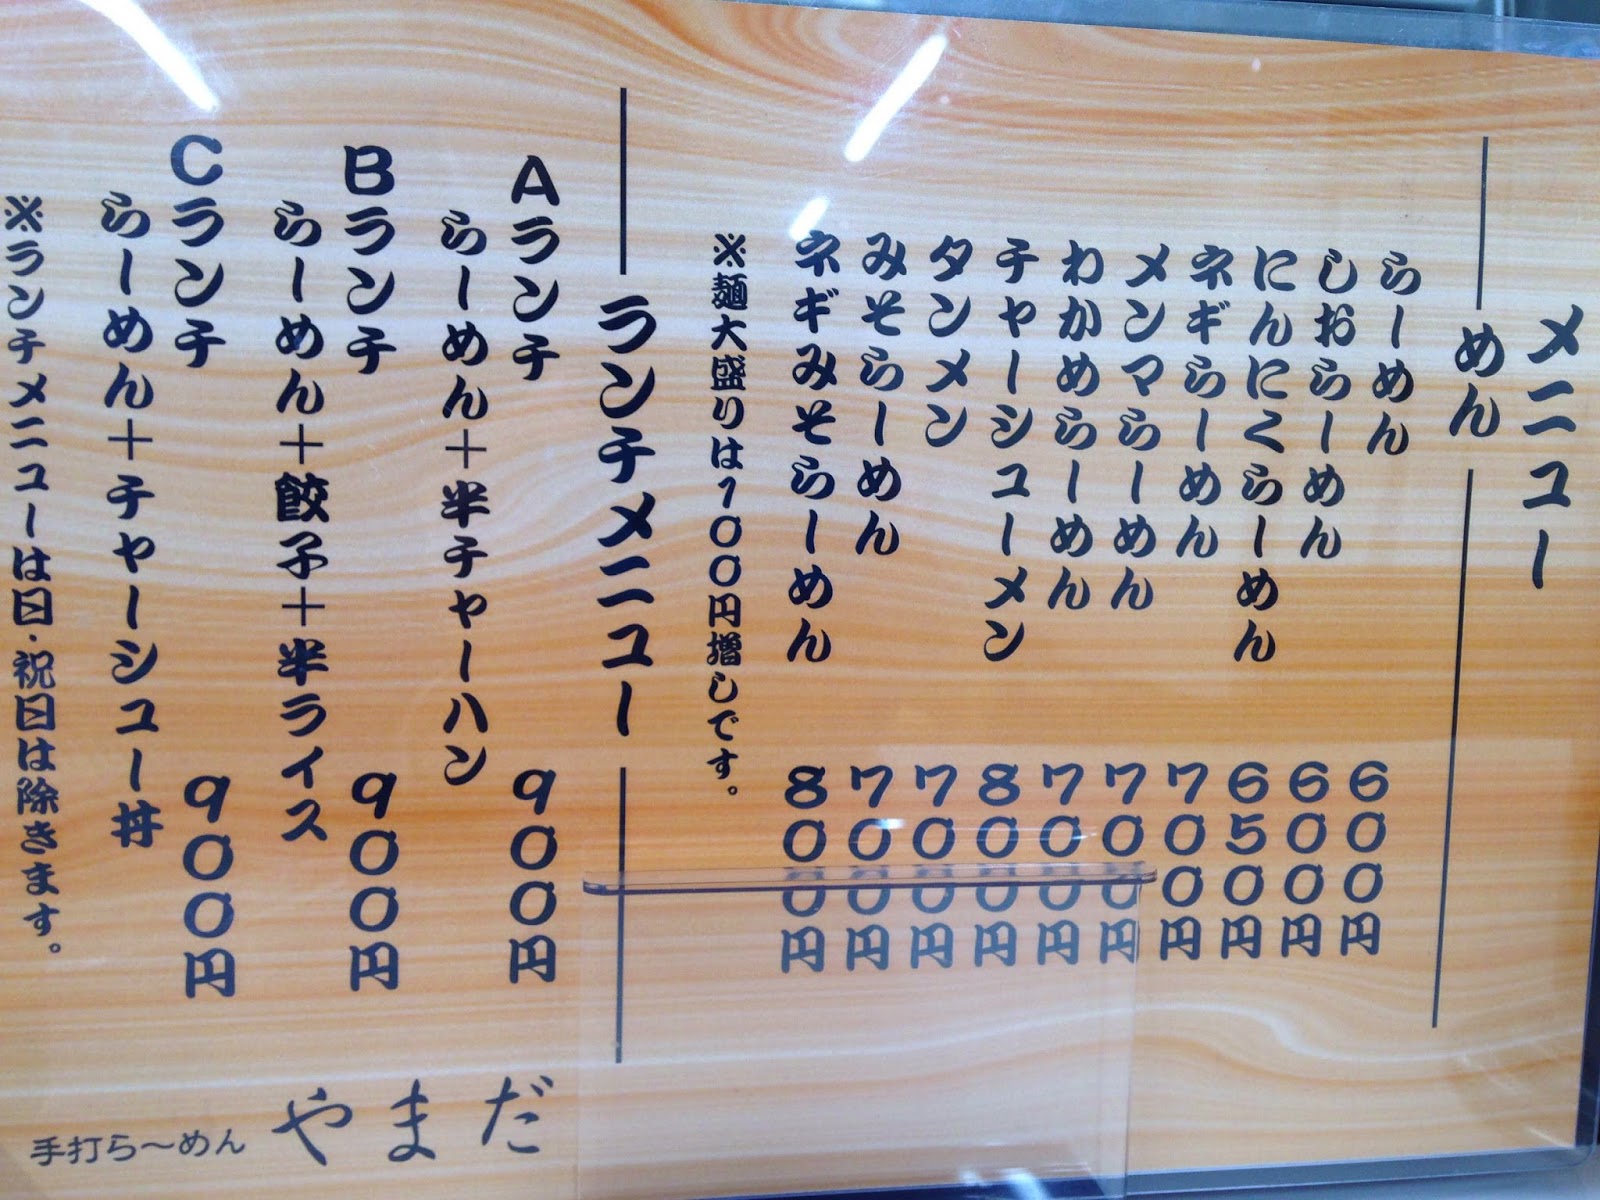 メニュー
めん
らーめん 600円
しおらーめん 600円
にんにくらーめん 650円
ネギらーめん 700円
メンマらーめん 700円
わかめらーめん 700円
チャーシューメン 800円
タンメン 700円
みそらーめん 700円
ネギみそらーめん 800円
※麺大盛りは100円増しです。
ランチメニュー
Aランチ 900円
らーめん+半チャーハン
Bランチ 900円
らーめん+餃子+半ライス
Cランチ 900円
らーめん+チャーシュー丼
※ランチメニューは日・祝日は除きます。
手打ら〜めん やまだ